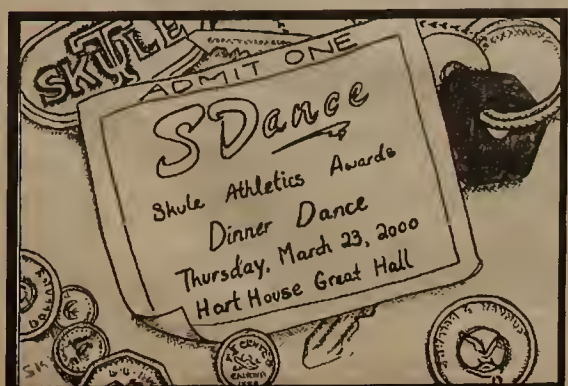 SKULE
ADMIT ONE
SDance
Skule Athletics Awards
Dinner Dance
Thursday, March 23, 2000
Hart House Great Hall